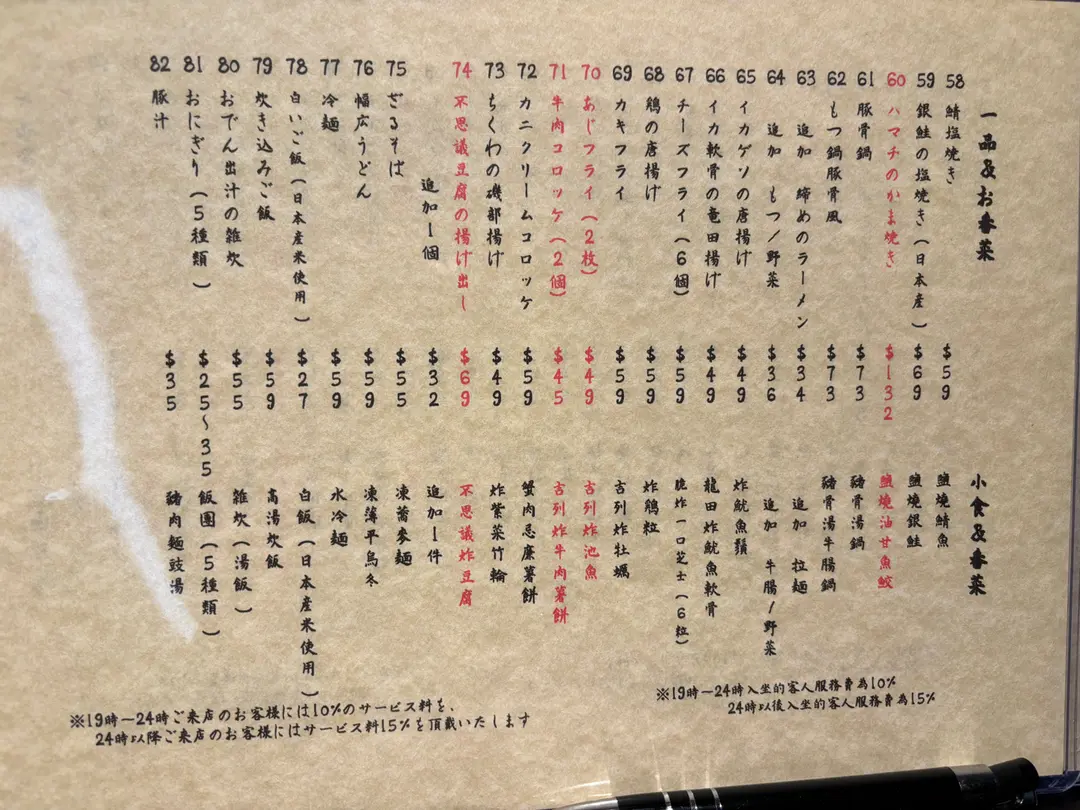 一品&お番菜 小食&番菜
58 鯖塩焼き $59 鹽燒鯖魚
59 銀鮭の塩焼き（日本産） $69 鹽燒銀鮭
60 ハマチのかま焼き $132 鹽燒油甘魚鮫
61 豚骨鍋 $73 豬骨湯鍋
62 もつ鍋豚骨風 $73 豬骨湯牛腸鍋
63 追加 締めのラーメン $34 追加 拉麺
64 追加 もつ/野菜 $36 追加 牛腸/野菜
65 イカゲソの唐揚げ $49 炸魷魚鬚
66 イカ軟骨の竜田揚げ $49 龍田炸魷魚軟骨
67 チーズフライ（6個） $59 脆炸一口芝士（6粒）
68 鶏の唐揚げ $59 炸鶏粒
69 カキフライ $59 吉列炸牡蠣
70 あじフライ（2枚） $49 吉列炸池魚
71 牛肉コロッケ（2個） $45 吉列炸牛肉薯餅
72 カニクリームコロッケ $59 蟹肉忌廉薯餅
73 ちくわの磯部揚げ $49 炸紫菜竹輪
74 不思議豆腐の揚げ出し $69 不思議炸豆腐
追加1個 $32 追加1件
75 ざるそば $55 凍蕎麥麺
76 幅広うどん $59 凍薄平烏冬
77 冷麺 $59 水冷麺
78 白いご飯（日本産米使用） $27 白飯（日本産米使用）
79 炊き込みご飯 $59 高湯炊飯
80 おでん出汁の雑炊 $55 雑炊（湯飯）
81 おにぎり（5種類） $25～35 飯團（5種類）
82 豚汁 $35 豬肉麺豉湯
※19時～24時入坐的客人服務費為10%
24時以後入坐的客人服務費為15%
※19時～24時ご来店のお客様には10%のサービス料を、
24時以降ご来店のお客様にはサービス料15%を頂戴いたします